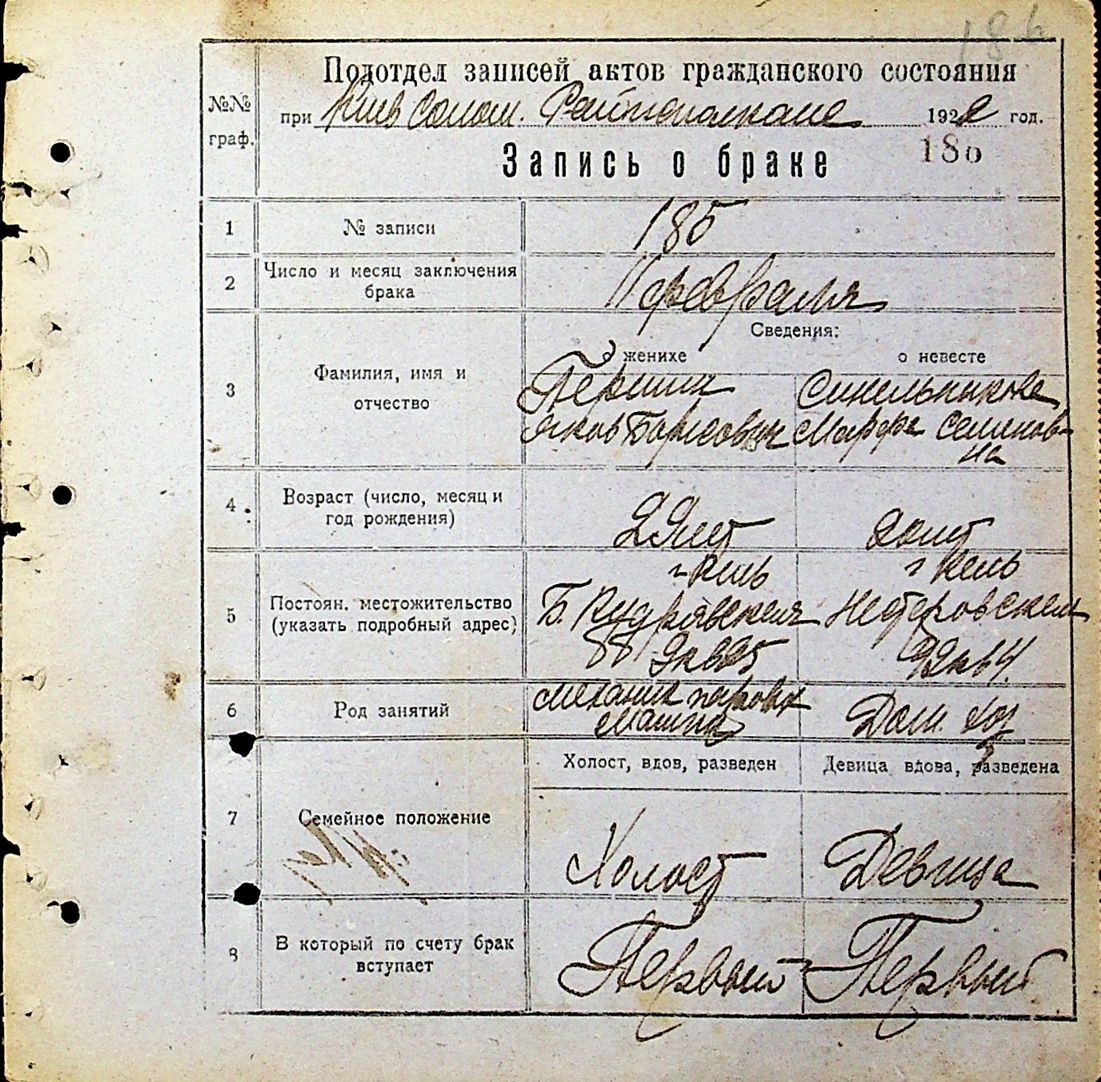 186
Подотдел записей актов гражданского состояния
№№ граф.
при Киев Солом. 1922 год.
186
Запись о браке
1 № записи 185
2 Число и месяц заключения брака 11 февраля
Сведения:
о женихе о невесте
3 Фамилия, имя и отчество
Синельникова
Яков Борисович Марфа Семенов-
на
4 Возраст (число, месяц и год рождения)
5 Постоян. местожительство (указать подробный адрес)
Б. Кудрявская Нестеровская
6 Род занятий
механик паров
машин Дом. хоз
Холост, вдов, разведен Девица вдова, разведена
7 Семейное положение
Холост Девица
8 В который по счету брак вступает
Первый Первый